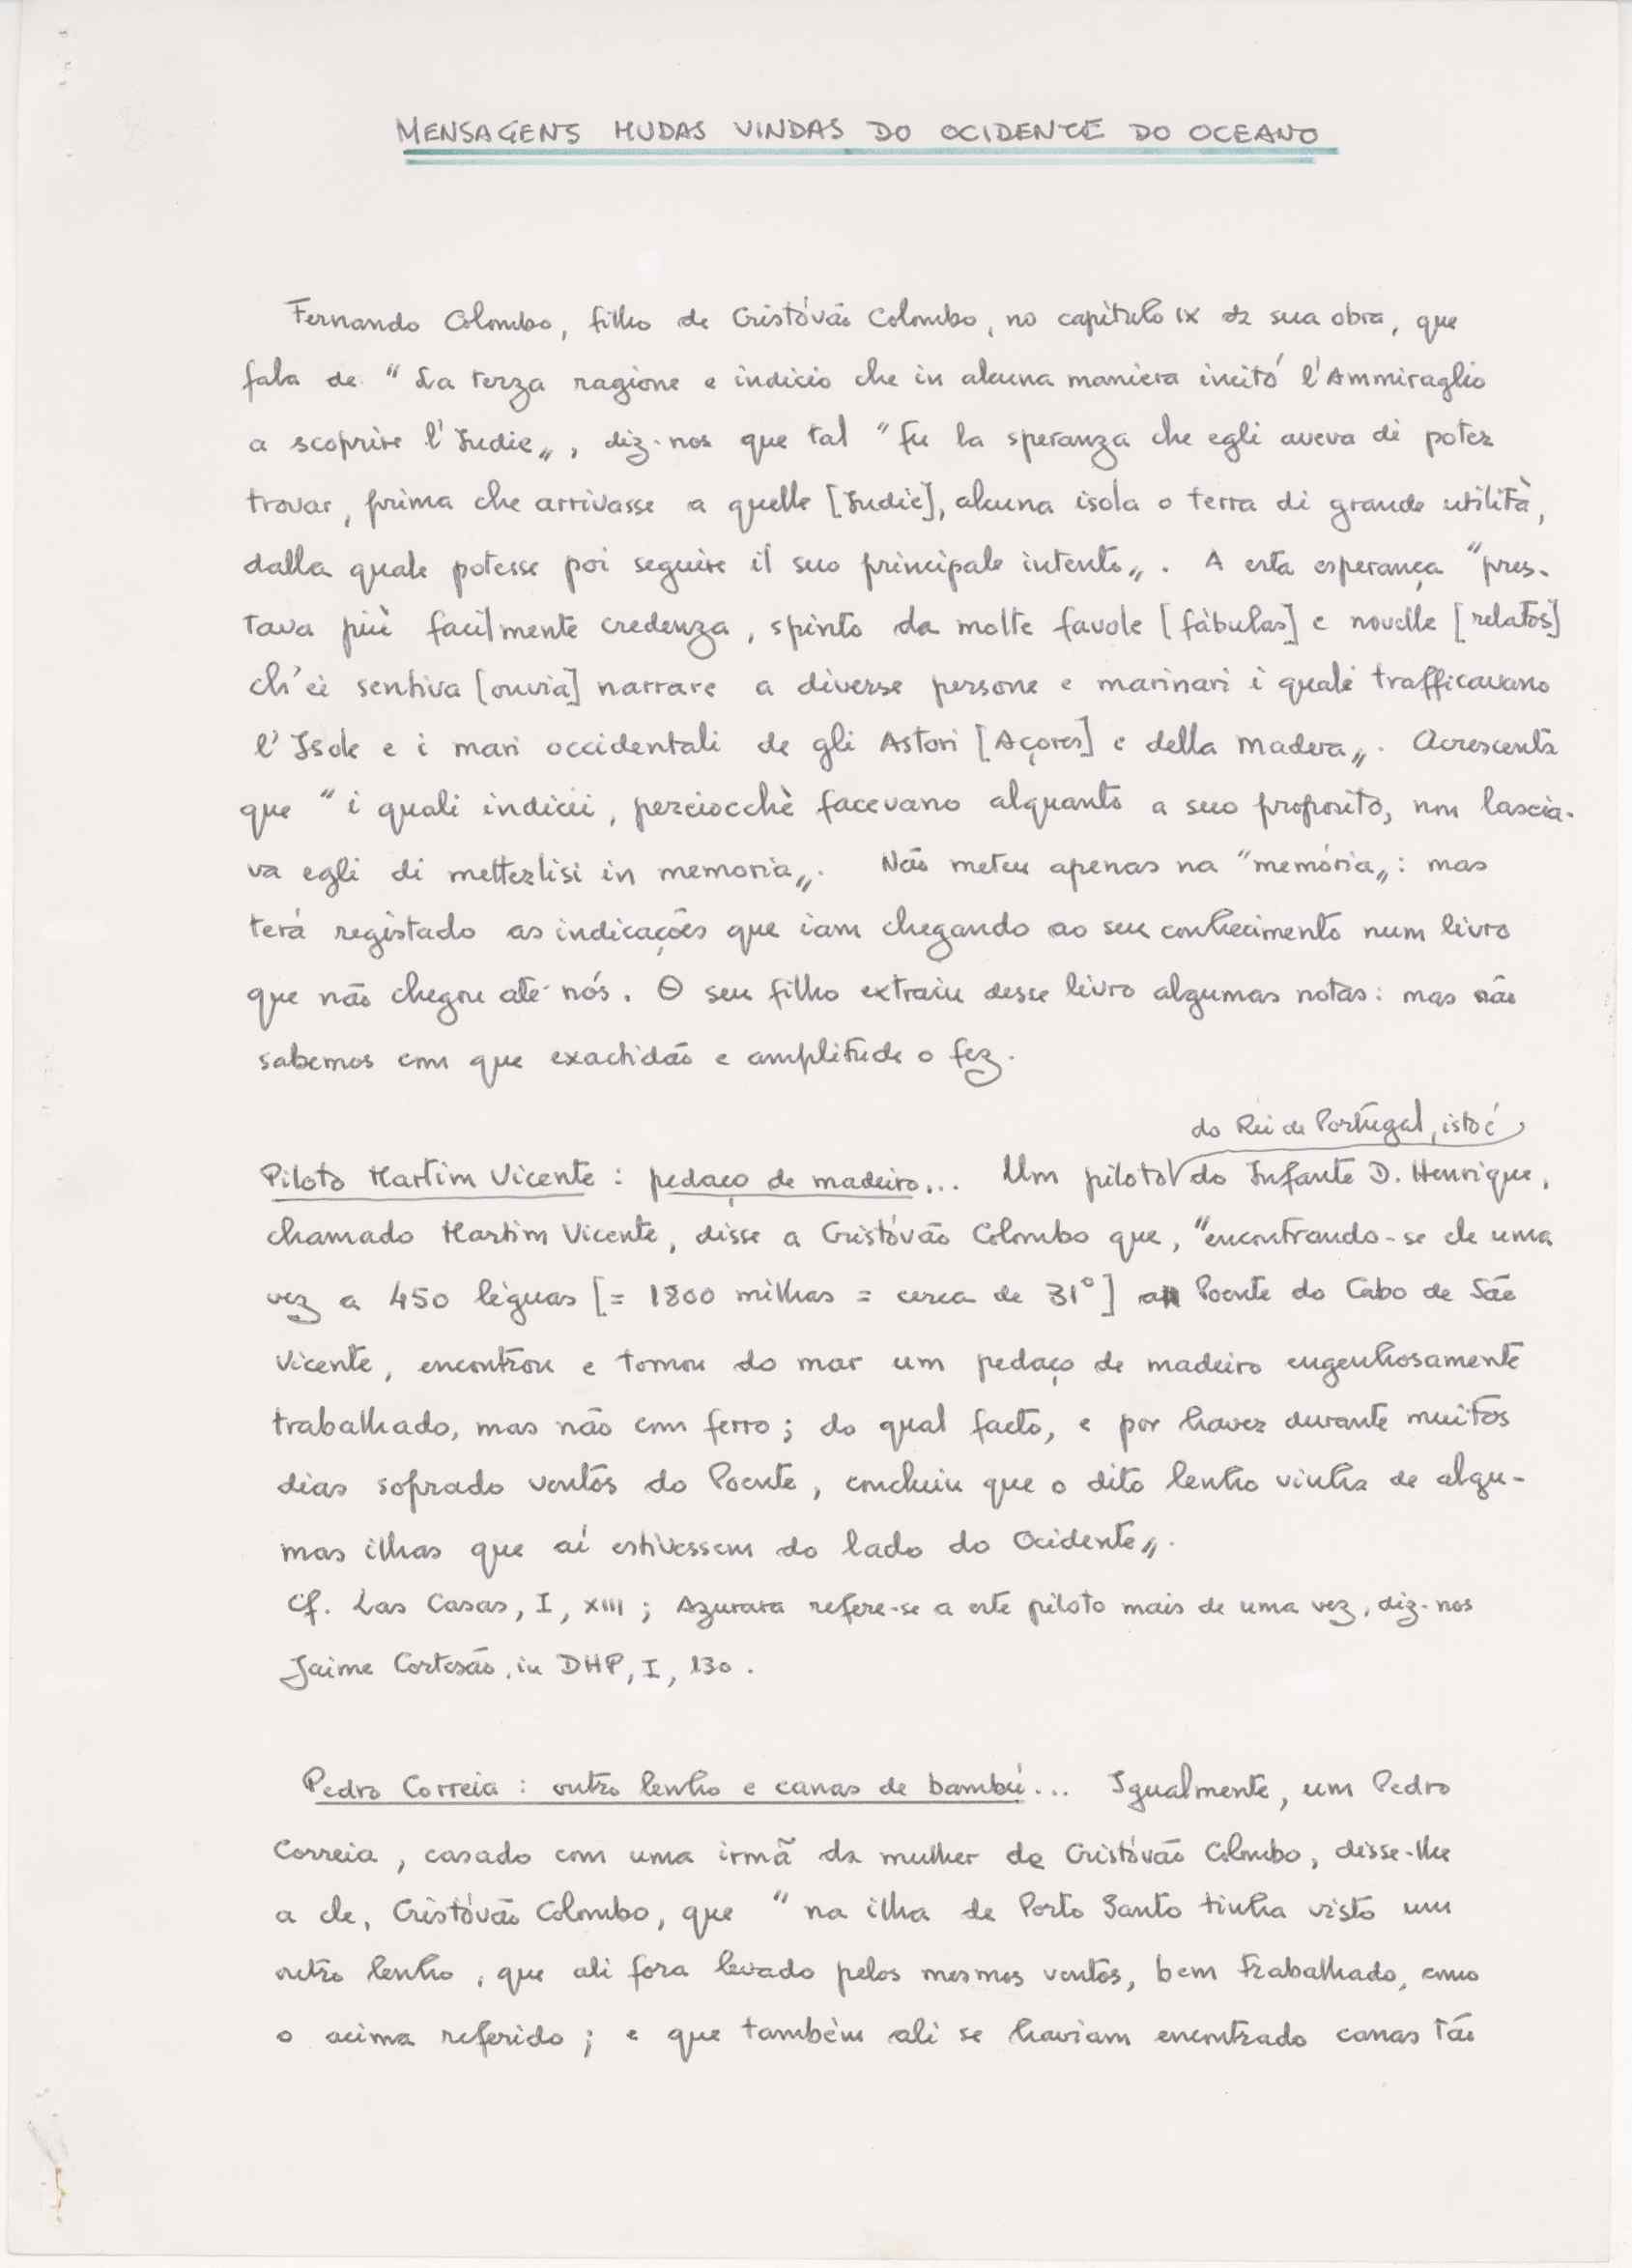 MENSAGENS MUDAS VINDAS DO OCIDENTE DO OCEANO
Fernando Colombo, filho de Cristóvão Colombo, no capítulo IX da sua obra, que
fala de "La terza ragione e indicio che in alcuna maniera incitó l'Ammiraglio
a scoprire l'Indie", diz-nos que tal "fu la speranza che egli aveva di poter
trovar, prima che arrivasse a quelle [Indie], alcuna isola o terra di grande utilità,
dalla quale potesse poi seguire il suo principale intento". A esta esperança "pres-
tava più facilmente credenza, spinto da molte favole [fàbulas] e novelle [relatos]
ch'ei sentiva [ouvia] narrare a diverse persone e marinari i quali trafficavano
l'Isole e i mari occidentali de gli Astori [Açores] e della Madera". Acrescenta
que "i quali indicii, perciocchè facevano alquanto a suo proposito, non lascia-
va egli di metterlisi in memoria". Não meteu apenas na "memória": mas
terá registado as indicações que iam chegando ao seu conhecimento num livro
que não chegou até nós. O seu filho extraiu desse livro algumas notas: mas não
sabemos com que exactidão e amplitude o fez.
do Rei de Portugal, isto é,
Piloto Martim Vicente : pedaço de madeiro... Um piloto do Infante D. Henrique,
chamado Martim Vicente, disse a Cristóvão Colombo que, "encontrando-se ele uma
vez a 450 léguas [= 1800 milhas = cerca de 31°] a Poente do Cabo de São
Vicente, encontrou e tomou do mar um pedaço de madeiro engenhosamente
trabalhado, mas não com ferro; do qual facto, e por haver durante muitos
dias soprado ventos do Poente, concluiu que o dito lenho vinha de algu-
mas ilhas que aí estivessem do lado do Ocidente".
Cf. Las Casas, I, XIII ; Azurara refere-se a este piloto mais de uma vez, diz-nos
Jaime Cortesão, in DHP, I, 130.
Pedro Correia : outro lenho e canas de bambú... Igualmente, um Pedro
Correia, casado com uma irmã da mulher de Cristóvão Colombo, disse-lhe
a ele, Cristóvão Colombo, que "na ilha de Porto Santo tinha visto um
outro lenho, que ali fora levado pelos mesmos ventos, bem trabalhado, como
o acima referido ; e que também ali se haviam encontrado canas tão